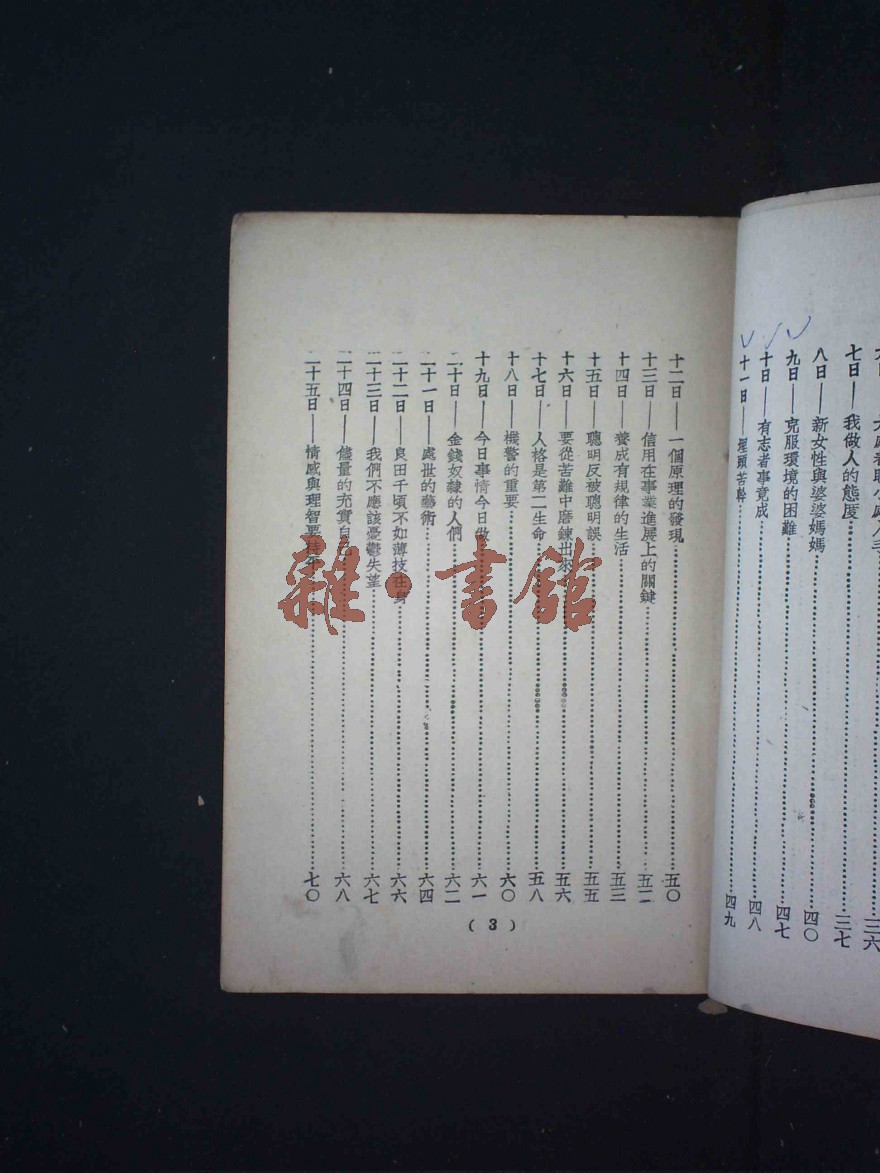 大處着眼小處入手……三六
七日——我做人的態度……三七
八日——新女性與婆婆媽媽……四〇
九日——克服環境的困難……四七
十日——有志者事竟成……四八
十一日——埋頭苦幹……四九
十二日——一個原理的發現……五〇
十三日——信用在事業進展上的關鍵……五二
十四日——養成有規律的生活……五三
十五日——聰明反被聰明誤……五五
十六日——要從苦難中磨鍊出來……五六
十七日——人格是第二生命……五八
十八日——機警的重要……六〇
十九日——今日事情今日做……六一
二十日——金錢奴隸的人們……六二
二十一日——處世的藝術……六四
二十二日——良田千頃不如薄技在身……六六
二十三日——我們不應該憂鬱失望……六七
二十四日——儘量的充實自己……六八
二十五日——情感與理智要……七〇
( 3 )
雜·書館